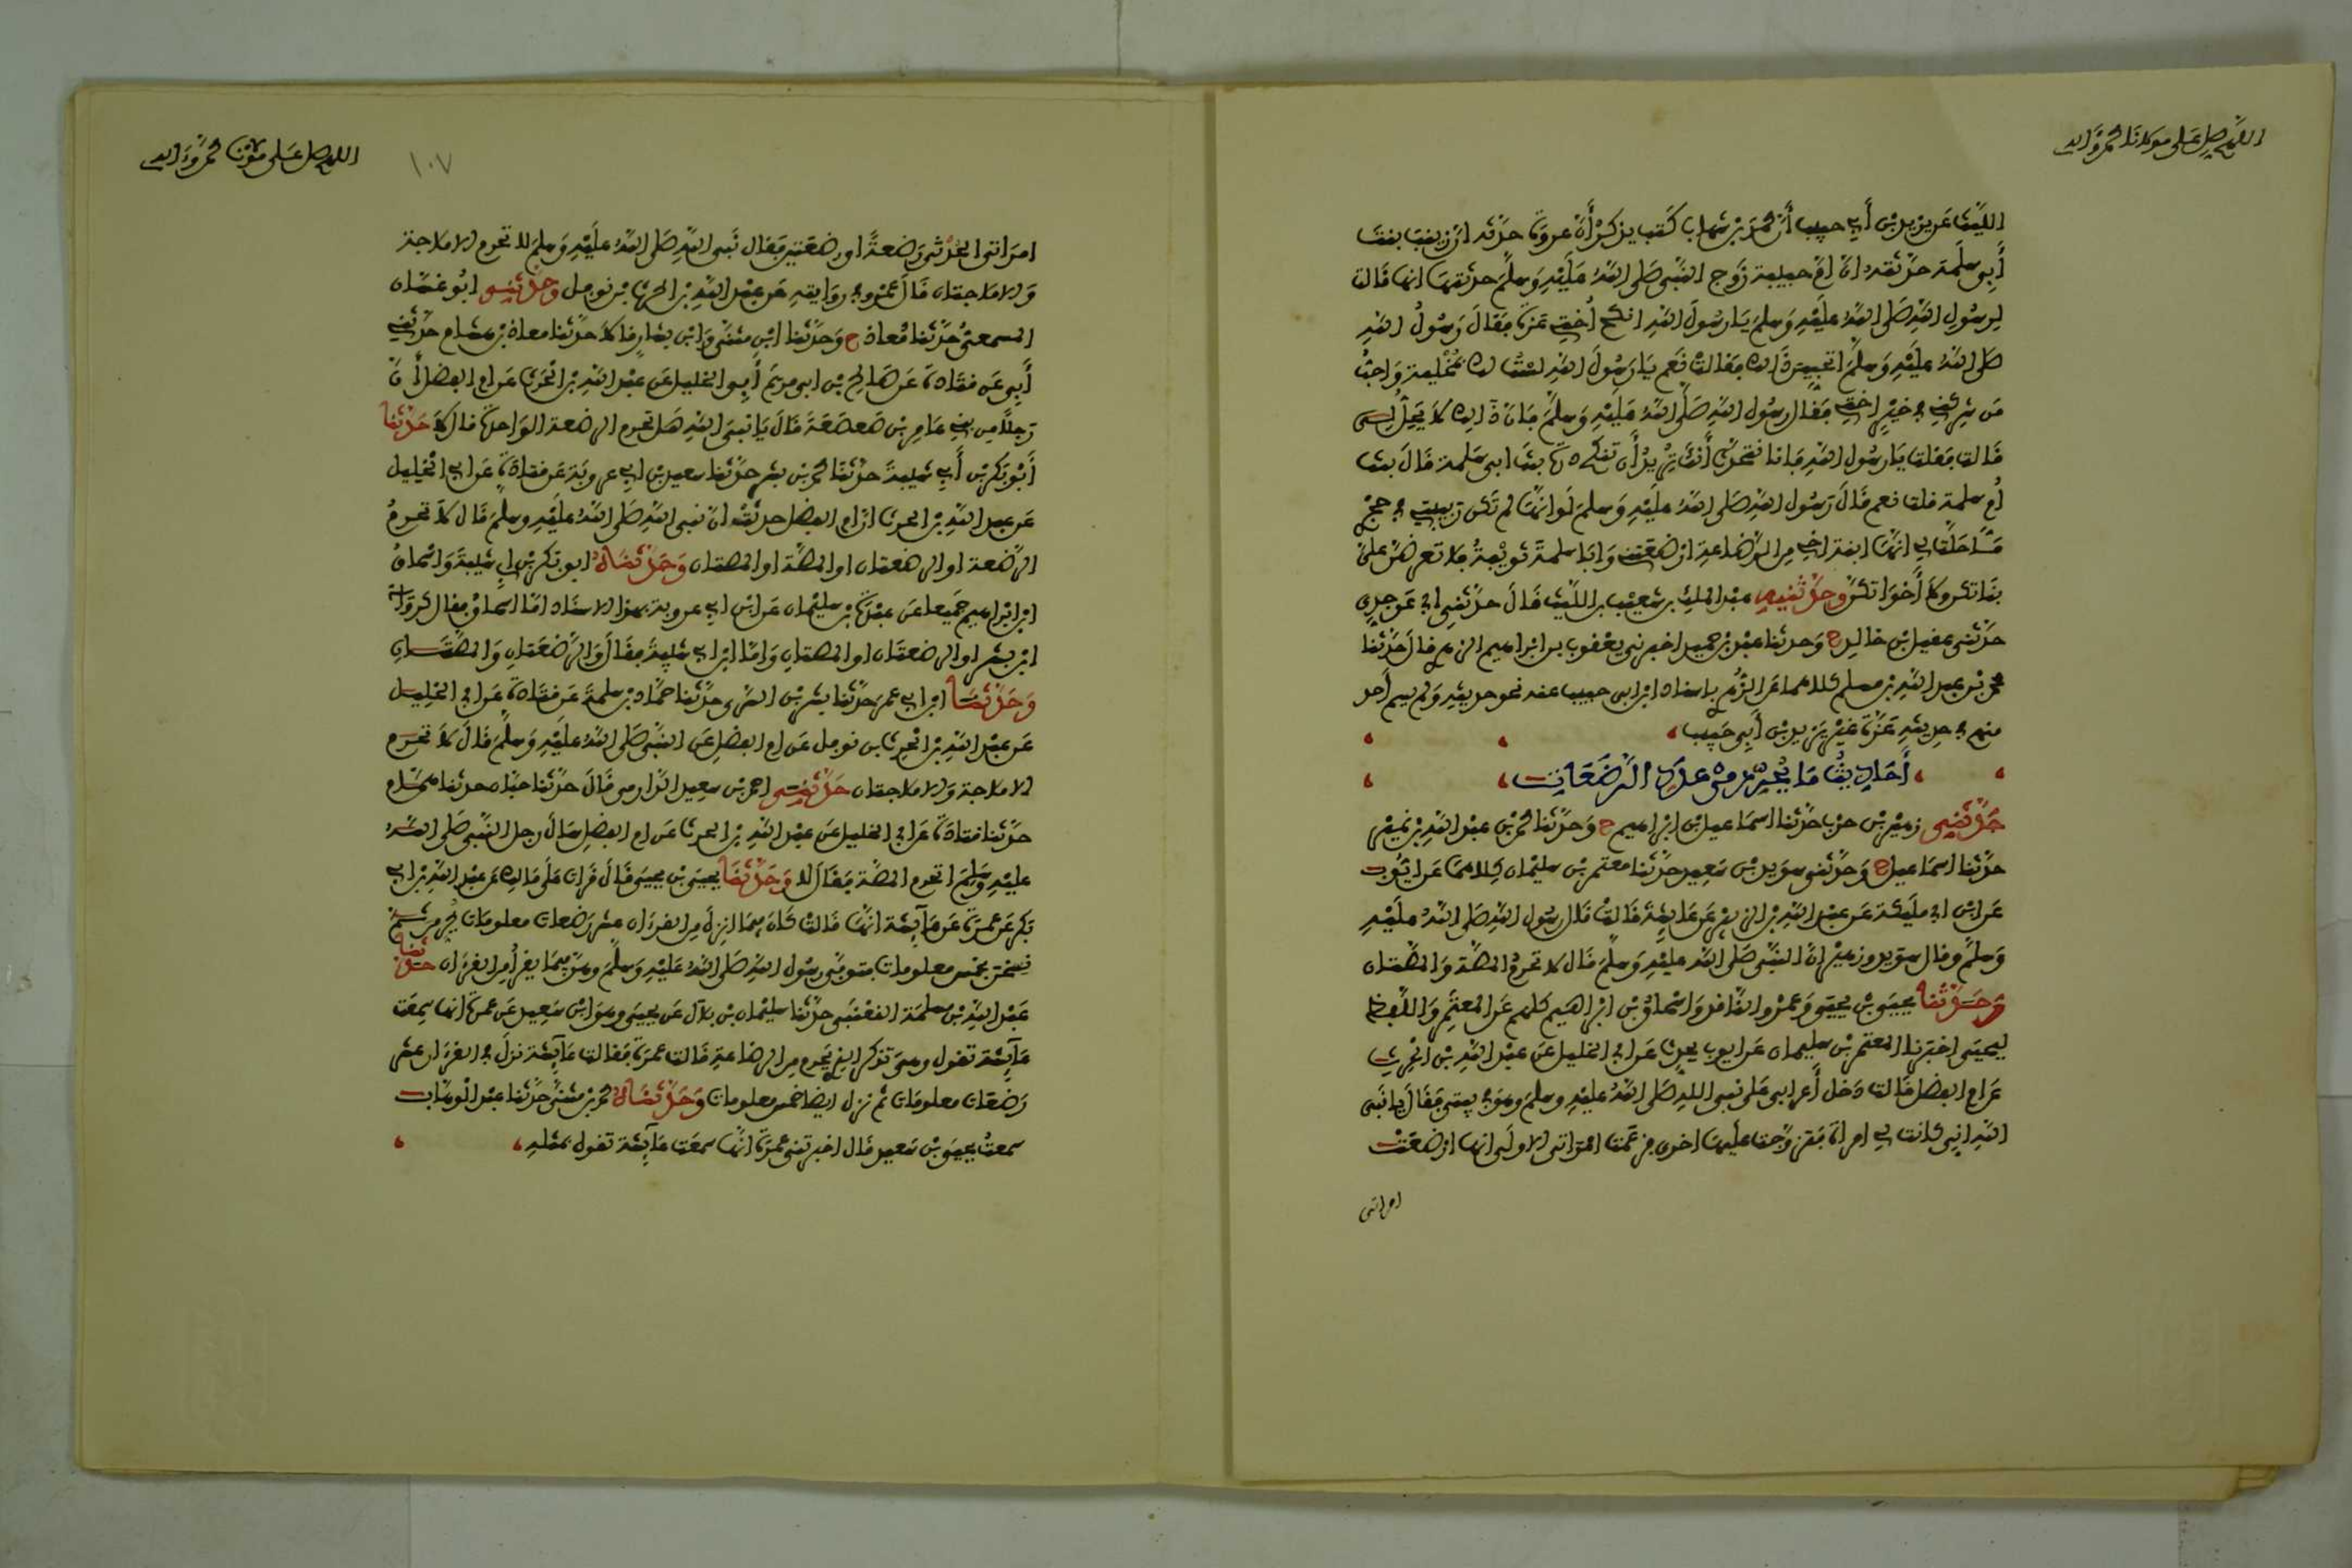 اللهم صل على مولانا محمد وآله
الليث عن يزيد بن أبي حبيب أن محمد بن شهاب كتب يذكر أن عروة حدثه ان زينب بنت
أبي سلمة حدثته ان ام حبيبة زوج النبي صلى الله عليه وسلم حدثتها انها قالت
لرسول الله صلى الله عليه وسلم يا رسول الله انكح اختي عزة فقال رسول الله
صلى الله عليه وسلم اتحبين ذلك فقالت نعم يا رسول الله لست لك بمخلية واحب
من شركني في خير اختي فقال رسول الله صلى الله عليه وسلم فان ذلك لا يحل لي
قالت فقلت يا رسول الله فانا نتحدث أنك تريد أن تنكح درة بنت ابي سلمة قال بنت
أم سلمة قلت نعم قال رسول الله صلى الله عليه وسلم لو انها لم تكن ربيبتي في حجري
ما حلت لي انها ابنة اخي من الرضاعة ارضعتني وابا سلمة ثويبة فلا تعرضن علي
بناتكن ولا أخواتكن وحدثنيه عبد الملك بن شعيب بن الليث قال حدثني ابي عن جدي
حدثني عقيل بن خالد ح وحدثنا عبد بن حميد اخبرني يعقوب بن ابراهيم الزهري قال حدثنا
محمد بن عبد الله بن مسلم كلاهما عن الزهري باسناد ابن ابي حبيب عنه نحو حديثه ولم يسم أحد
منهم في حديثه عزة غير يزيد بن أبي حبيب
أحاديث ما يحرم من عدد الرضعات
حدثني زهير بن حرب حدثنا اسماعيل بن ابراهيم ح وحدثنا محمد بن عبد الله بن نمير
حدثنا اسماعيل ح وحدثني سويد بن سعيد حدثنا معتمر بن سليمان كلاهما عن ايوب
عن ابن ابي مليكة عن عبد الله بن الزبير عن عايشة قالت قال رسول الله صلى الله عليه
وسلم وقال سويد وزهير ان النبي صلى الله عليه وسلم قال لا تحرم المصة والمصتان
وحدثنا يحيى بن يحيى وعمرو الناقد واسحاق بن ابراهيم كلهم عن المعتمر واللفظ
ليحيى اخبرنا المعتمر بن سليمان عن ايوب يحدث عن ابي الخليل عن عبد الله بن الحرث
عن ام الفضل قالت دخل أعرابي على نبي الله صلى الله عليه وسلم وهو في بيتي فقال يا نبي
الله اني كانت لي امرأة فتزوجت عليها اخرى فزعمت امرأتي الاولى انها ارضعت
امراتي
اللهم صل على مولانا محمد وآله
١٠٧
امرأتي الحدثى رضعة او رضعتين فقال نبي الله صلى الله عليه وسلم لا تحرم الاملاجة
والاملاجتان قال عمرو في روايته عن عبد الله بن الحرث بن نوفل وحدثني ابو غسان
المسمعي حدثنا معاذ ح وحدثنا ابن مثنى وابن بشار قالا حدثنا معاذ بن هشام حدثني
أبي عن قتادة عن صالح بن ابي مريم أبي الخليل عن عبد الله بن الحرث عن ام الفضل أن
رجلا من بني عامر بن صعصعة قال يا نبي الله هل تحرم الرضعة الواحدة قال لا حدثنا
أبو بكر بن أبي شيبة حدثنا محمد بن بشر حدثنا سعيد بن ابي عروبة عن قتادة عن ابي الخليل
عن عبد الله بن الحرث ان ام الفضل حدثته ان نبي الله صلى الله عليه وسلم قال لا تحرم
الرضعة او الرضعتان او المصة او المصتان وحدثناه ابو بكر بن ابي شيبة واسحاق
ابن ابراهيم جميعا عن عبدة بن سليمان عن ابن ابي عروبة بهذا الاسناد اما اسحاق فقال كرواية
ابن بشر او الرضعتان او المصتان واما ابن ابي شيبة فقال والرضعتان والمصتان
وحدثنا ابن ابي عمر حدثنا بشر بن السري حدثنا حماد بن سلمة عن قتادة عن ابي الخليل
عن عبد الله بن الحرث بن نوفل عن ام الفضل عن النبي صلى الله عليه وسلم قال لا تحرم
الاملاجة والاملاجتان حدثني احمد بن سعيد الدارمي قال حدثنا حبان حدثنا همام
حدثنا قتادة عن ابي الخليل عن عبد الله بن الحرث عن ام الفضل سأل رجل النبي صلى الله
عليه وسلم اتحرم المصة فقال لا وحدثنا يحيى بن يحيى قال قرات على مالك عن عبد الله بن ابي
بكر عن عمرة عن عايشة انها قالت كان فيما انزل من القرءان عشر رضعات معلومات يحرمن ثم
نسخن بخمس معلومات فتوفي رسول الله صلى الله عليه وسلم وهو فيما يقرأ من القرءان حدثنا
عبد الله بن مسلمة القعنبي حدثنا سليمان بن بلال عن يحيى وهو ابن سعيد عن عمرة انها سمعت
عايشة تقول وهي تذكر الذي يحرم من الرضاعة قالت عمرة فقالت عايشة نزل في القرءان عشر
رضعات معلومات ثم نزل ايضا خمس معلومات وحدثناه محمد بن مثنى حدثنا عبد الوهاب
سمعت يحيى بن سعيد قال اخبرتني عمرة انها سمعت عايشة تقول بمثله